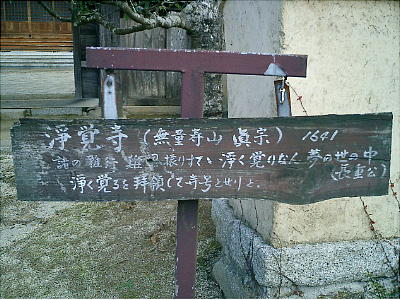 淨覚寺 (無量寿山 眞宗) 1641
諸の雑行 振りすてゝ 淨く覚りなん 夢の世の中
淨く覚るを拝領して寺号とせりと。(長重公)